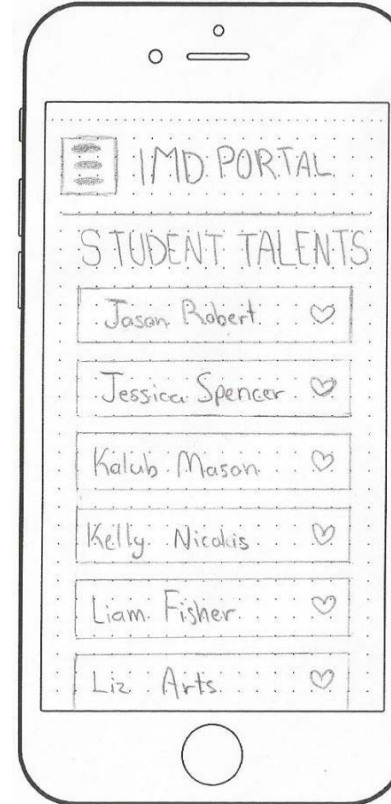 IMD PORTAL
STUDENT TALENTS
Jason Robert
Jessica Spencer
Kalub Mason
Kelly Nicolis
Liam Fisher
Liz Arts